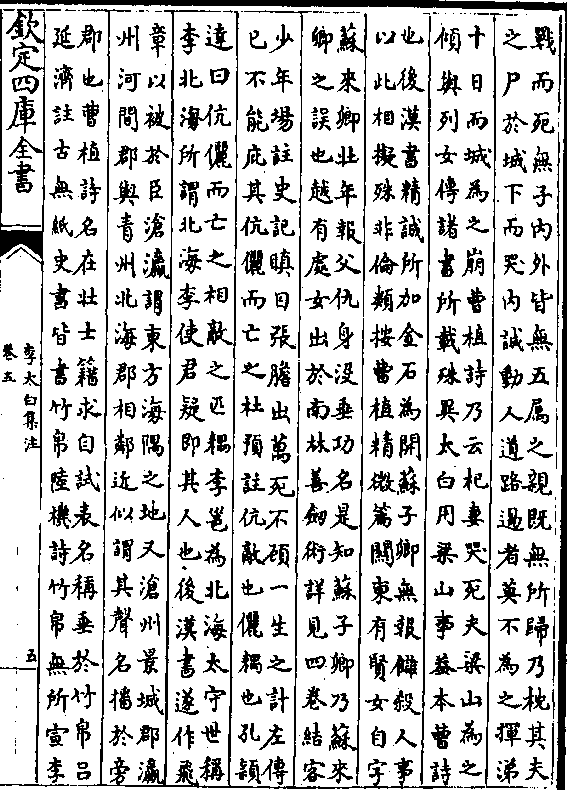 戰而死無子內外皆無五屬之親既無所歸乃枕其夫
之尸於城下而哭內諴動人道路過者莫不為之揮涕
十日而城為之崩曹植詩乃云杞妻哭死夫梁山為之
傾與列女傳諸書所載殊異太白用梁山事蓋本曹詩
也後漢書精誠所加金石為開蘇子卿無報讎殺人事
以此相擬殊非倫類按曹植精微篇關東有賢女自字
蘇來卿壯年報父仇身沒垂功名是知蘇子卿乃蘇來
卿之誤也越有處女出於南林善劍術詳見四卷結客
少年場註史記瞋目張膽出萬死不顧一生之計左傳
已不能庇其伉儷而亡之杜預註伉敵也儷耦也孔穎
達曰伉儷而亡之相敵之匹耦李邕為北海太守世稱
李北海所謂北海李使君疑即其人也後漢書遂作飛
章以被於臣滄瀛謂東方海隅之地又滄州景城郡瀛
州河間郡與青州北海郡相鄰近似謂其聲名播於旁
郡也曹植詩名在壯士籍求自試表名稱垂於竹帛呂
延濟註古無紙史書皆書竹帛陸機詩竹帛無所宣李
欽定四庫全書
李太白集注
卷五
五